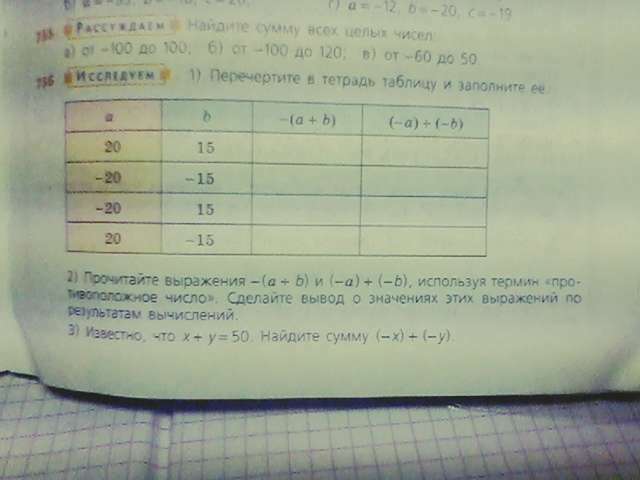 г) a = −12, b = −20, c = −19
755 РАССУЖДАЕМ Найдите сумму всех целых чисел:
а) от −100 до 100; б) от −100 до 120; в) от −60 до 50.
756 ИССЛЕДУЕМ 1) Перечертите в тетрадь таблицу и заполните её.
a b −(a + b) (−a) + (−b)
20 15
−20 −15
−20 15
20 −15
2) Прочитайте выражения −(a + b) и (−a) + (−b), используя термин «про-
тивоположное число». Сделайте вывод о значениях этих выражений по
результатам вычислений.
3) Известно, что x + y = 50. Найдите сумму (−x) + (−y).